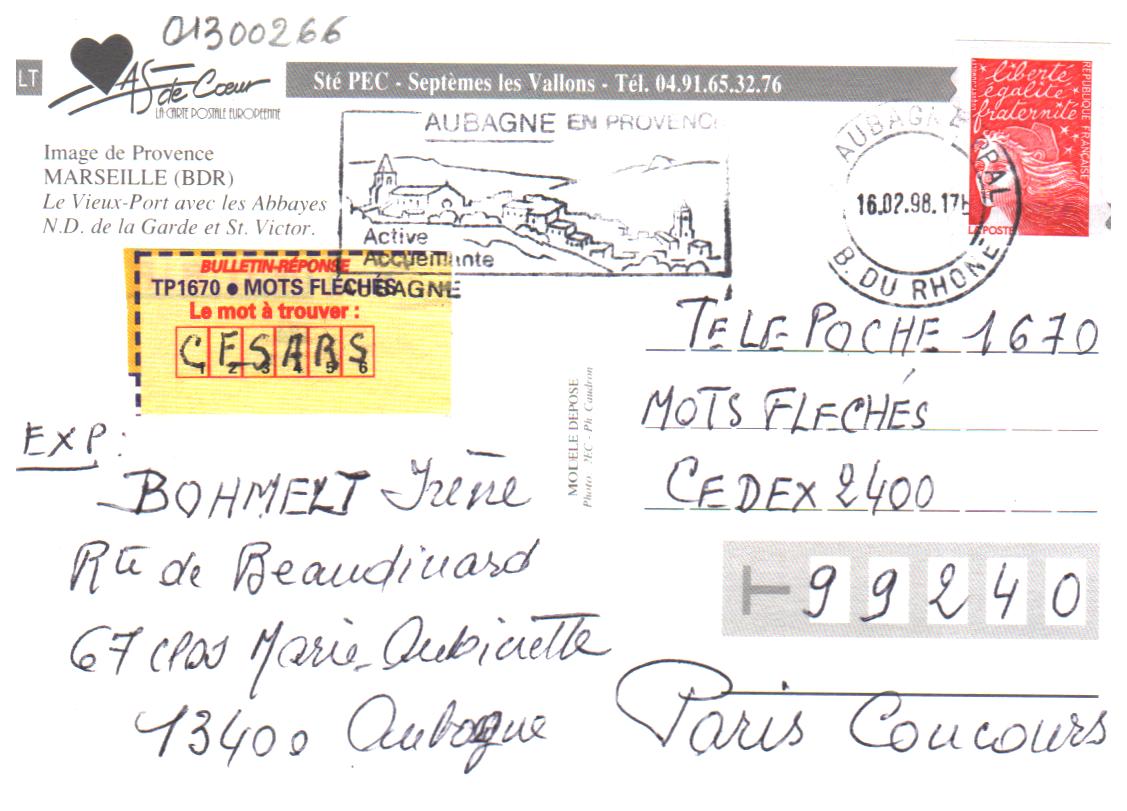 01300266
LT
AS de Cœur
LA CARTE POSTALE EUROPEENNE
Sté PEC - Septèmes les Vallons - Tél. 04.91.65.32.76
Image de Provence
MARSEILLE (BDR)
Le Vieux-Port avec les Abbayes
N.D. de la Garde et St. Victor.
AUBAGNE EN PROVENCE
Active
Accueillante
AUBAGNE
AUBAGNE PPAL
16.02.98.17H
B. DU RHONE
liberté
égalité
fraternité
RÉPUBLIQUE FRANÇAISE
LA POSTE
BULLETIN-RÉPONSE
TP1670 ● MOTS FLÉCHÉS
Le mot à trouver :
CESARS
1 2 3 4 5 6
MODELE DEPOSE
Photo : PEC - Ph. Caudron
TÉLÉ POCHE 1670
MOTS FLECHÉS
CEDEX 2400
99240
Paris Concours
EXP :
BOHMELT Irène
Rte de Beaudinard
67 clos Marie-Aubinette
13400 Aubagne